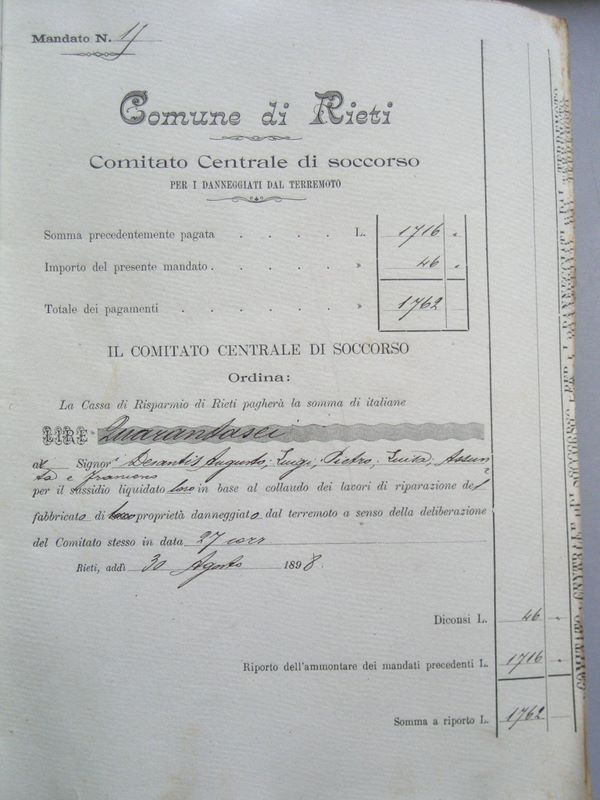 Mandato N. 17
Comune di Rieti
Comitato Centrale di soccorso
PER I DANNEGGIATI DAL TERREMOTO
Somma precedentemente pagata . . . . L. 1716 "
Importo del presente mandato . . . . . » 46 "
Totale dei pagamenti . . . . . . » 1762
IL COMITATO CENTRALE DI SOCCORSO
Ordina:
La Cassa di Risparmio di Rieti pagherà la somma di italiane
LIRE Quarantasei
Signor Desantis Augusto, Luigi, Pietro, Luisa, Assun
ta e
per il sussidio liquidato loro in base al collaudo dei lavori di riparazione del
fabbricato di loro proprietà danneggiato dal terremoto a senso della deliberazione
del Comitato stesso in data 27 corr
Rieti, addì 30 Agosto 1898.
Diconsi L. 46 "
Riporto dell'ammontare dei mandati precedenti L. 1716 "
Somma a riporto L. 1762